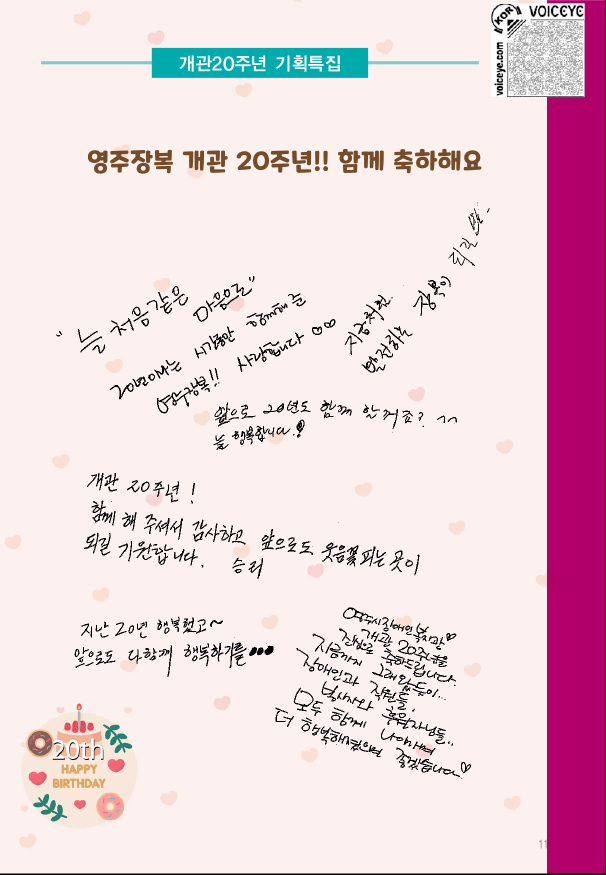 KOR
VOICEYE
voiceye.com
개관20주년 기획특집
영주장복 개관 20주년!! 함께 축하해요
"늘 처음같은 마음으로"
20년이라는 시간동안 함께해 준
영주장복!! 사랑합니다 ♡♡
지금처럼
발전하는 장복이 되길
앞으로 20년도 함께 할꺼죠? ^^
늘 행복합니다!
개관 20주년!
함께 해 주셔서 감사하고 앞으로도 웃음꽃 피는 곳이
되길 기원합니다. 승리
지난 20년 행복했고~
앞으로도 다함께 행복하기를...
영주시장애인복지관♡
개관 20주년을
진심으로 축하드립니다.
지금까지 그래왔듯이...
장애인과 직원들,
복지사와 후원자님들..
모두 함께 나아가며
더 행복해졌으면 좋겠습니다♡
20th
HAPPY
BIRTHDAY
11